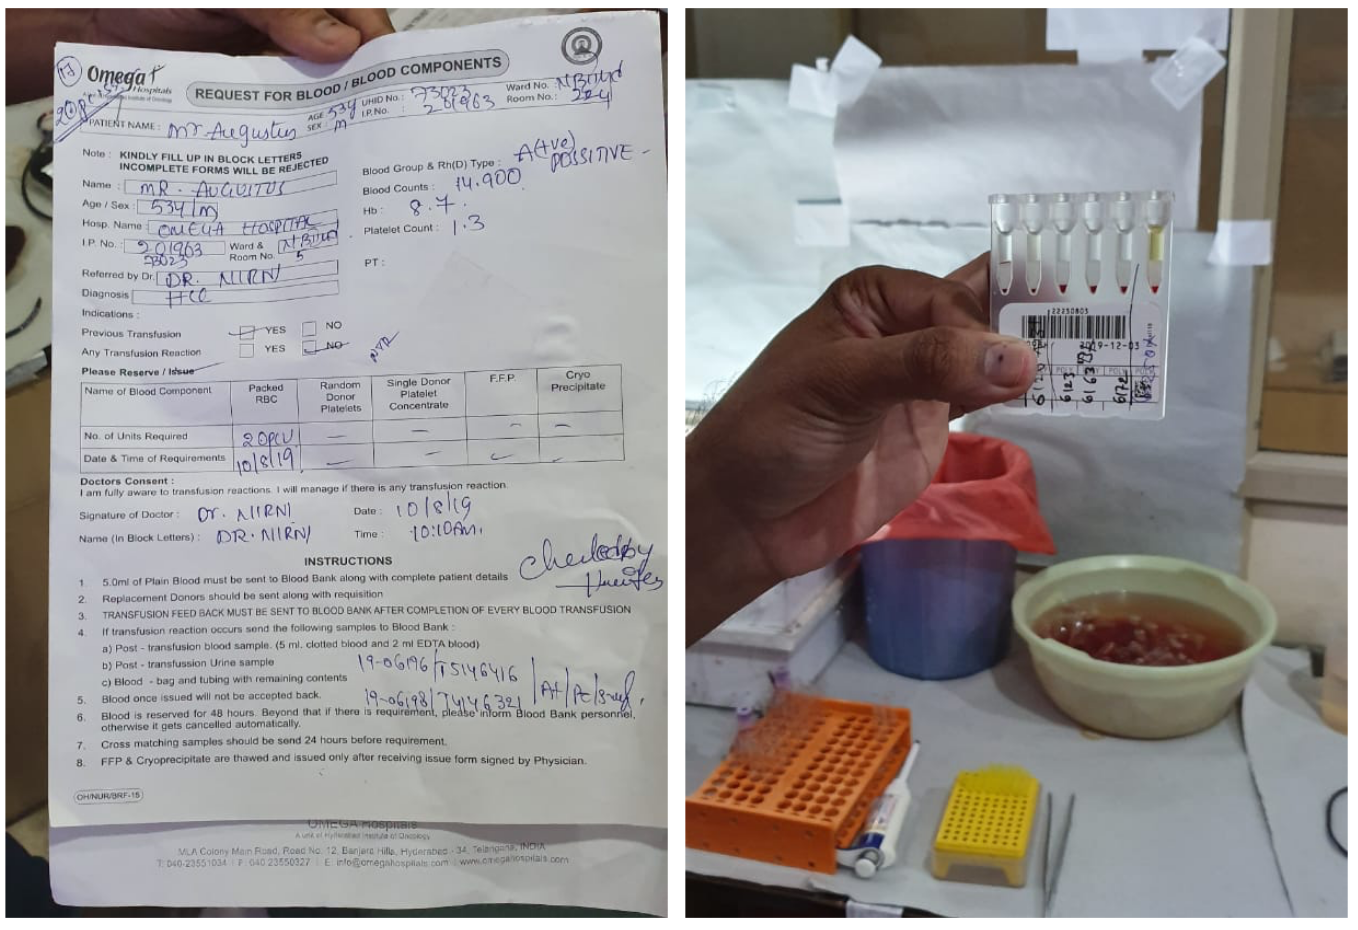 17
Omega
Hospitals
REQUEST FOR BLOOD / BLOOD COMPONENTS
PATIENT NAME : Mr Augustus AGE 53Y SEX : M UHID No. : 73023 I.P. No. : 201963 Ward No. Room No. :
Note : KINDLY FILL UP IN BLOCK LETTERS
INCOMPLETE FORMS WILL BE REJECTED
Blood Group & Rh(D) Type : A(+ve) POSSITIVE -
Name : MR. AUGUSTUS
Blood Counts : 14.900
Age / Sex : 53Y/M
Hb : 8.7.
Hosp. Name : OMEGA HOSPITAL
Platelet Count : 1.3
I.P. No. : 201963 73023 Ward & Room No. 5
PT :
Referred by Dr. DR. NIRNI
Diagnosis HCC
Indications :
Previous Transfusion YES NO
Any Transfusion Reaction YES NO
Please Reserve / Issue
Name of Blood Component Packed RBC Random Donor Platelets Single Donor Platelet Concentrate F.F.P. Cryo Precipitate
No. of Units Required 2 0PCV
Date & Time of Requirements 10/8/19
Doctors Consent :
I am fully aware to transfusion reactions. I will manage if there is any transfusion reaction.
Signature of Doctor : Dr. NIRNI Date : 10/8/19
Name (In Block Letters) : DR. NIRNI Time : 10:10AM.
Checked by
INSTRUCTIONS
1. 5.0ml of Plain Blood must be sent to Blood Bank along with complete patient details
2. Replacement Donors should be sent along with requisition
3. TRANSFUSION FEED BACK MUST BE SENT TO BLOOD BANK AFTER COMPLETION OF EVERY BLOOD TRANSFUSION
4. If transfusion reaction occurs send the following samples to Blood Bank :
a) Post - transfusion blood sample. (5 ml. clotted blood and 2 ml EDTA blood)
b) Post - transfussion Urine sample
c) Blood - bag and tubing with remaining contents
19-06196/T5146416
5. Blood once issued will not be accepted back.
19-06198/T4146321
6. Blood is reserved for 48 hours. Beyond that if there is requirement, please inform Blood Bank personnel,
otherwise it gets cancelled automatically.
7. Cross matching samples should be send 24 hours before requirement.
8. FFP & Cryoprecipitate are thawed and issued only after receiving issue form signed by Physician.
OH/NUR/BRF-15
OMEGA Hospitals
A unit of Hyderabad Institute of Oncology
MLA Colony Main Road, Road No. 12, Banjara Hills, Hyderabad - 34, Telangana, INDIA
T: 040-23551034 | F: 040 23550327 | E: info@omegahospitals.com | www.omegahospitals.com
22250803
9-12-03
6123
6163
6172